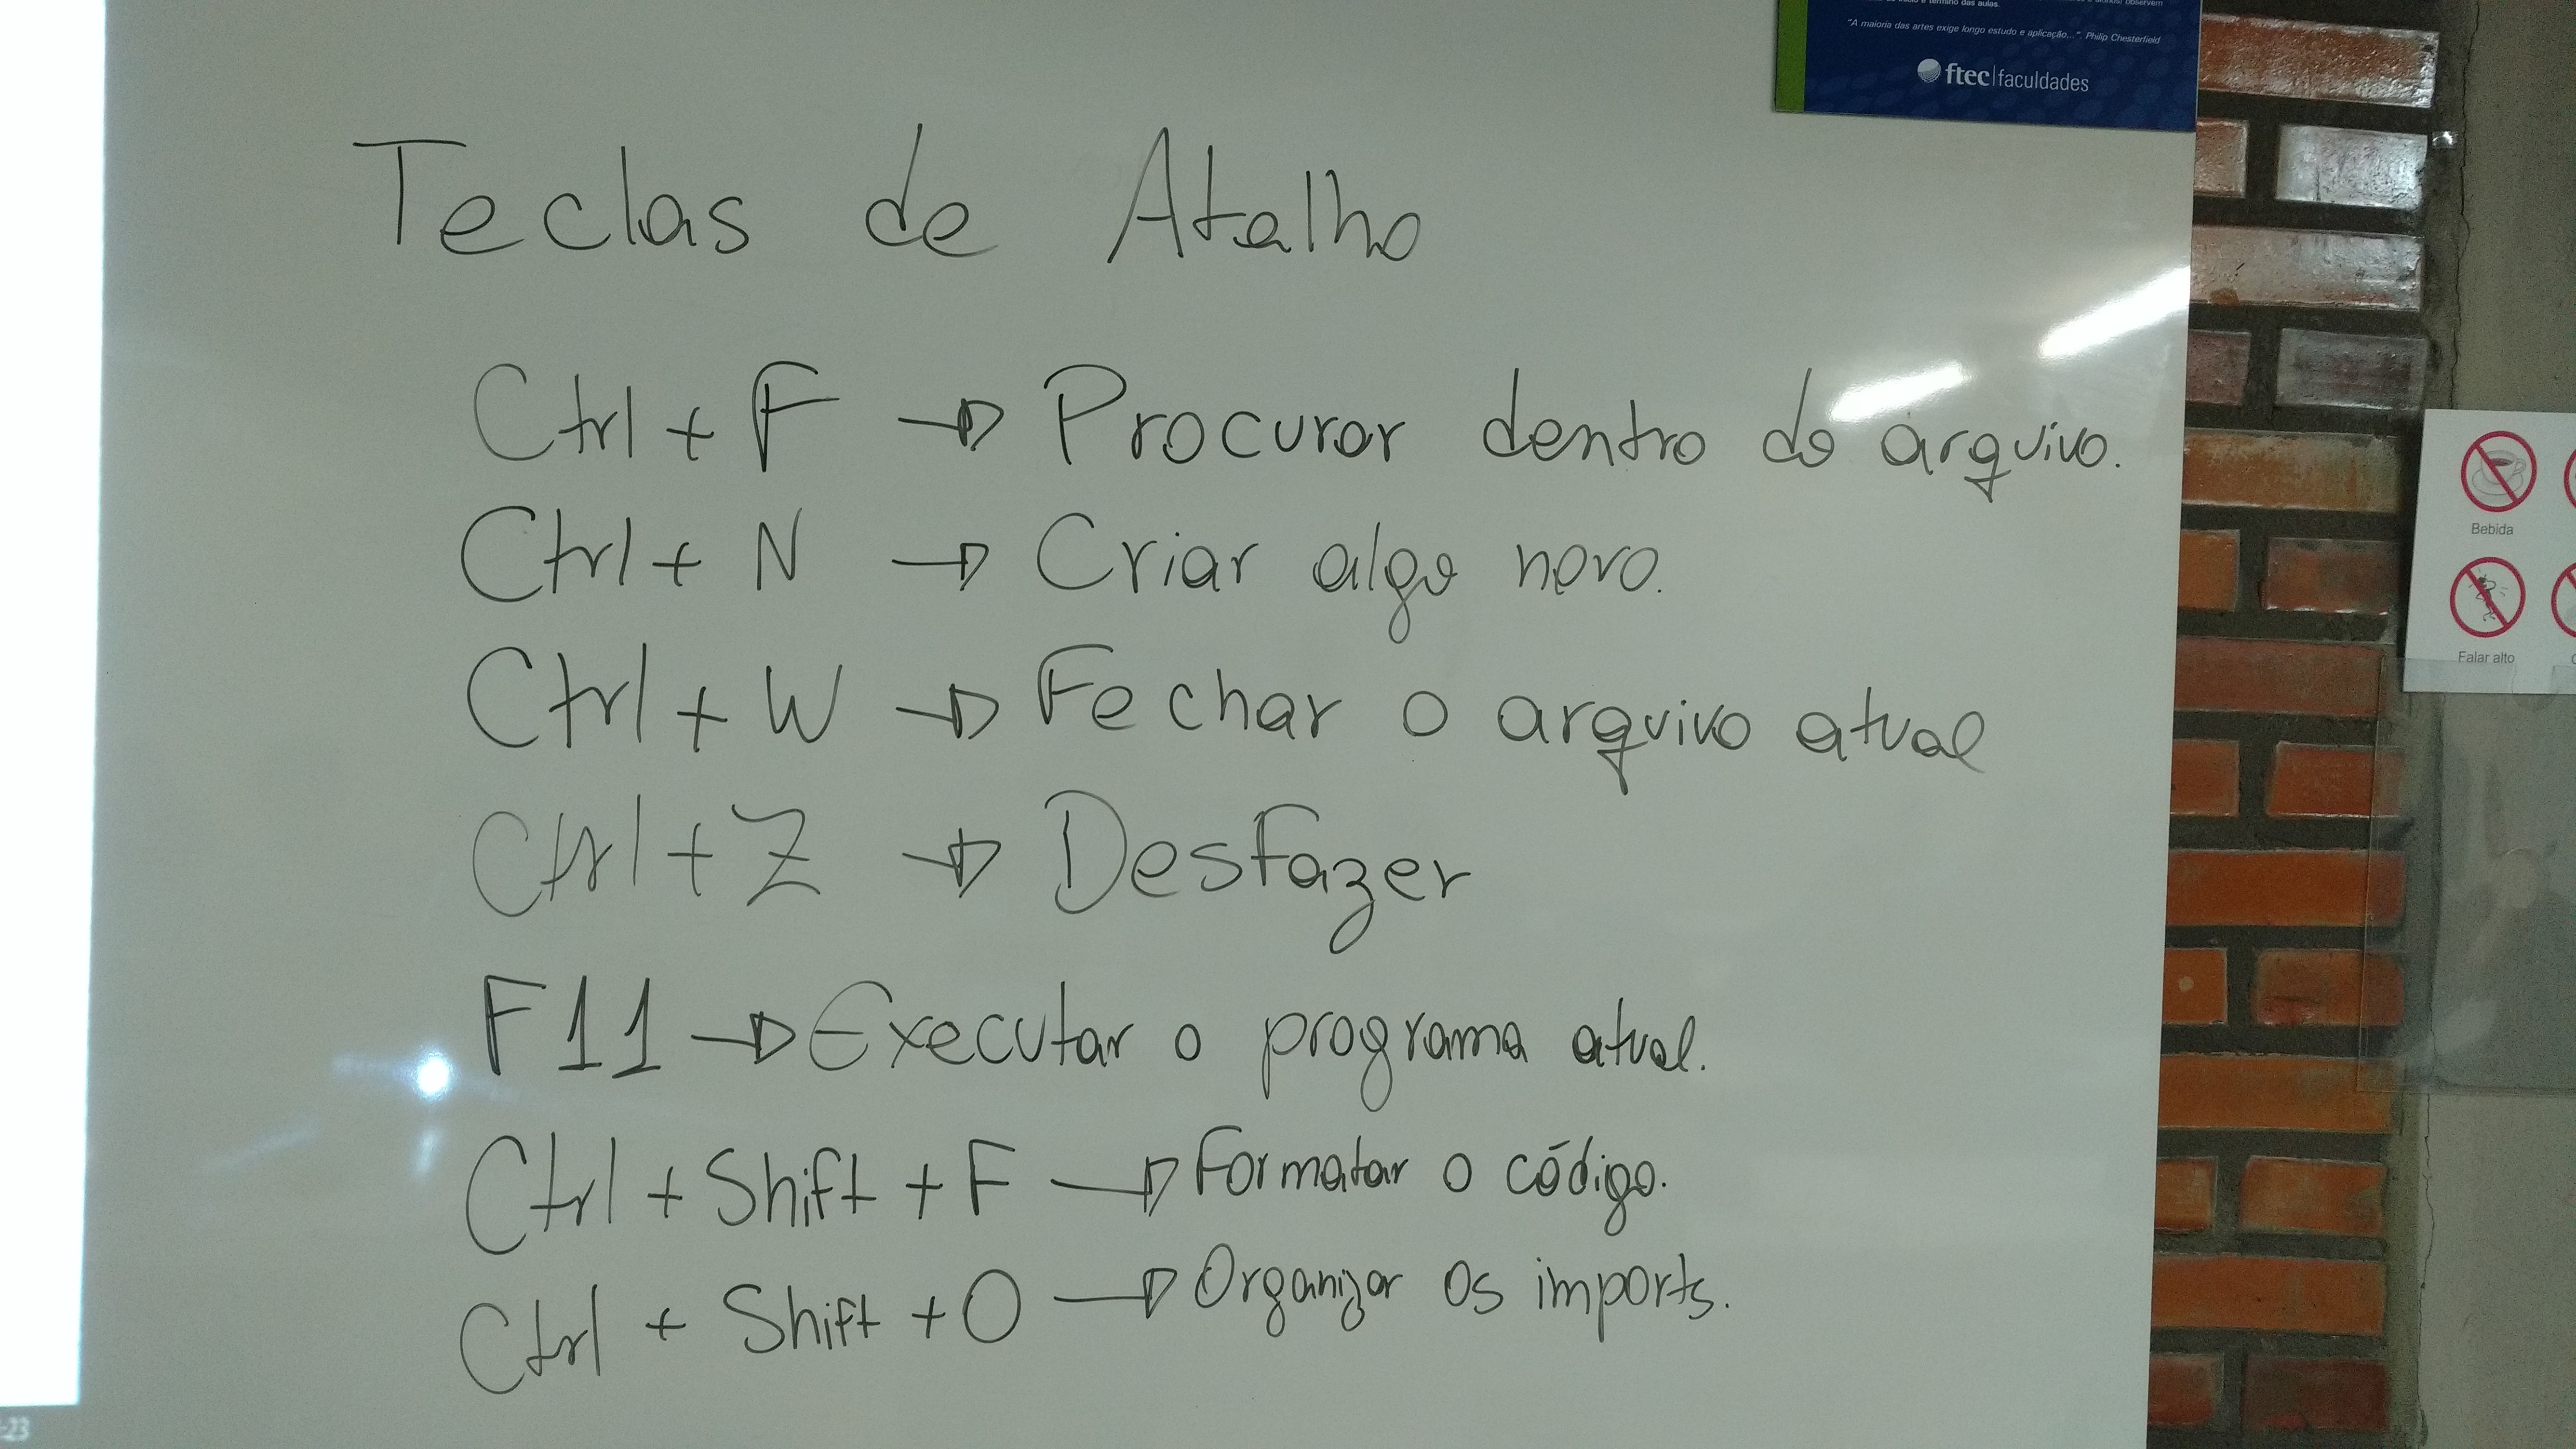 término das aulas.
observem
"A maioria das artes exige longo estudo e aplicação...". Philip Chesterfield
ftec|faculdades
Teclas de Atalho
Ctrl + F → Procurar dentro do arquivo.
Ctrl + N → Criar algo novo.
Ctrl + W → Fechar o arquivo atual
Ctrl + Z → Desfazer
F11 → Executar o programa atual.
Ctrl + Shift + F → Formatar o código.
Ctrl + Shift + O → Organizar os imports.
Bebida
Falar alto
-23